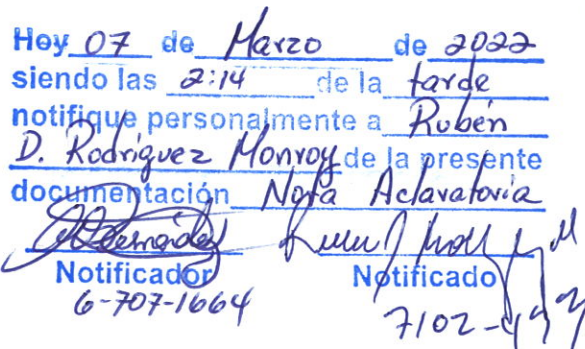 Hoy 07 de Marzo de 2022
siendo las 2:14 de la tarde
notifique personalmente a Rubén
D. Rodríguez Monroy de la presente
documentación Nota Aclaratoria
Notificador Notificado
6-707-1664